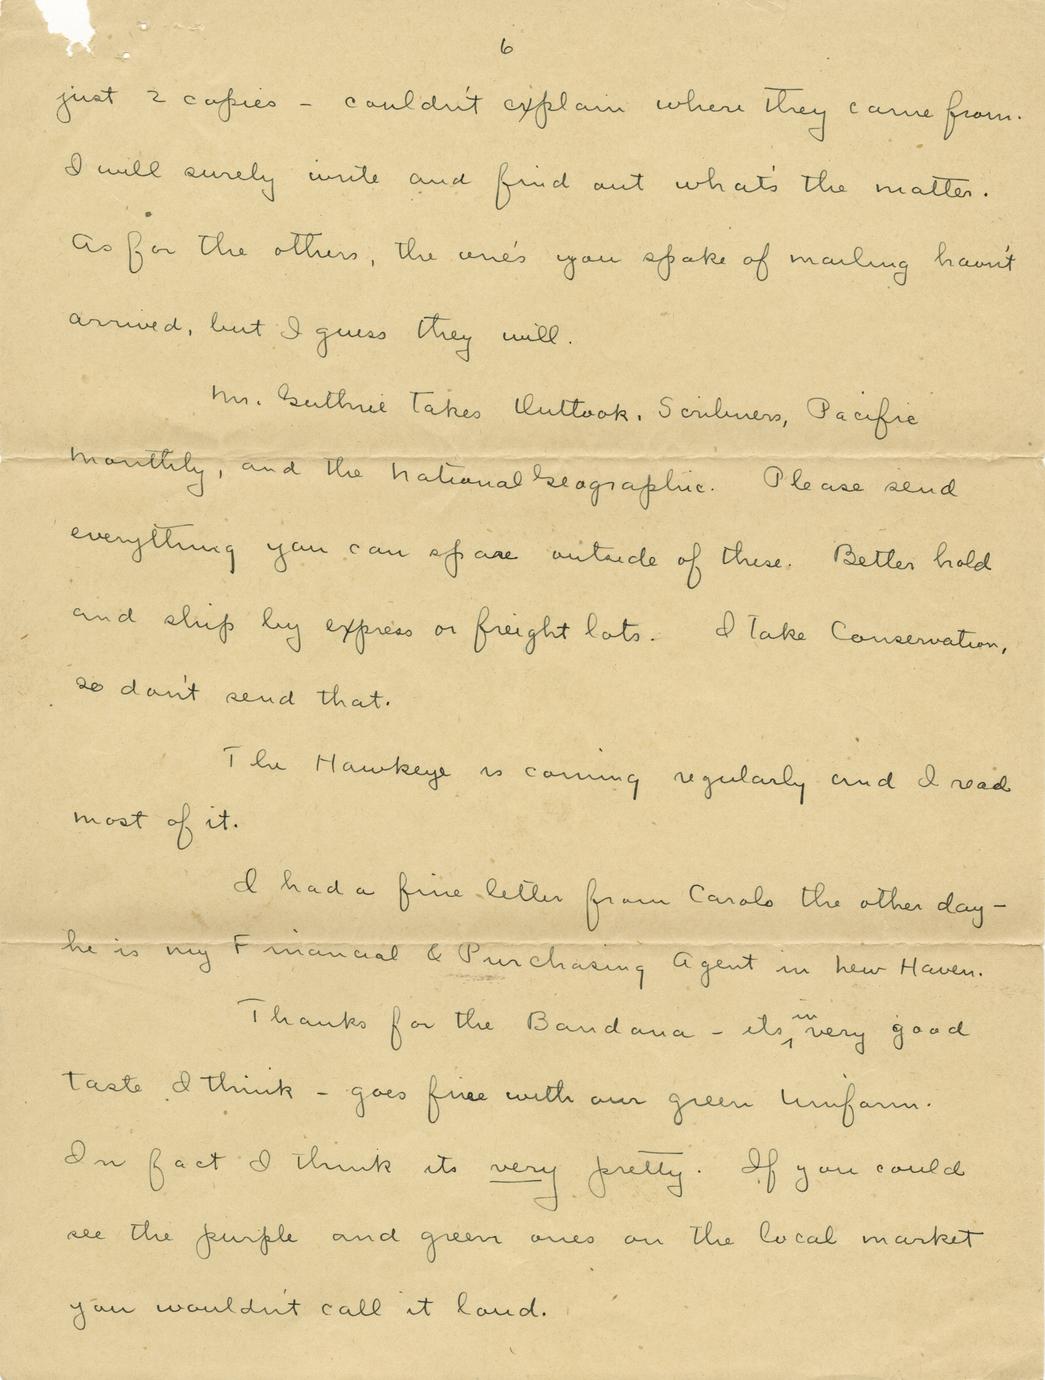 6
just 2 copies - couldn't explain where they came from.
I will surely write and find out what's the matter.
As for the others, the one's you spoke of mailing havn't
arrived, but I guess they will.
Mr. Guthrie takes Outlook, Scribners, Pacific
Monthly, and the National Geographic. Please send
everything you can spare outside of these. Better hold
and ship by express or freight lots. I take Conservation,
so don't send that.
The Hawkeye is coming regularly and I read
most of it.
I had a fine letter from Carolo the other day -
he is my Financial & Purchasing Agent in New Haven.
Thanks for the Bandana - its in very good
taste I think - goes fine with our green Uniform.
In fact I think its very pretty. If you could
see the purple and green ones on the local market
you wouldn't call it loud.